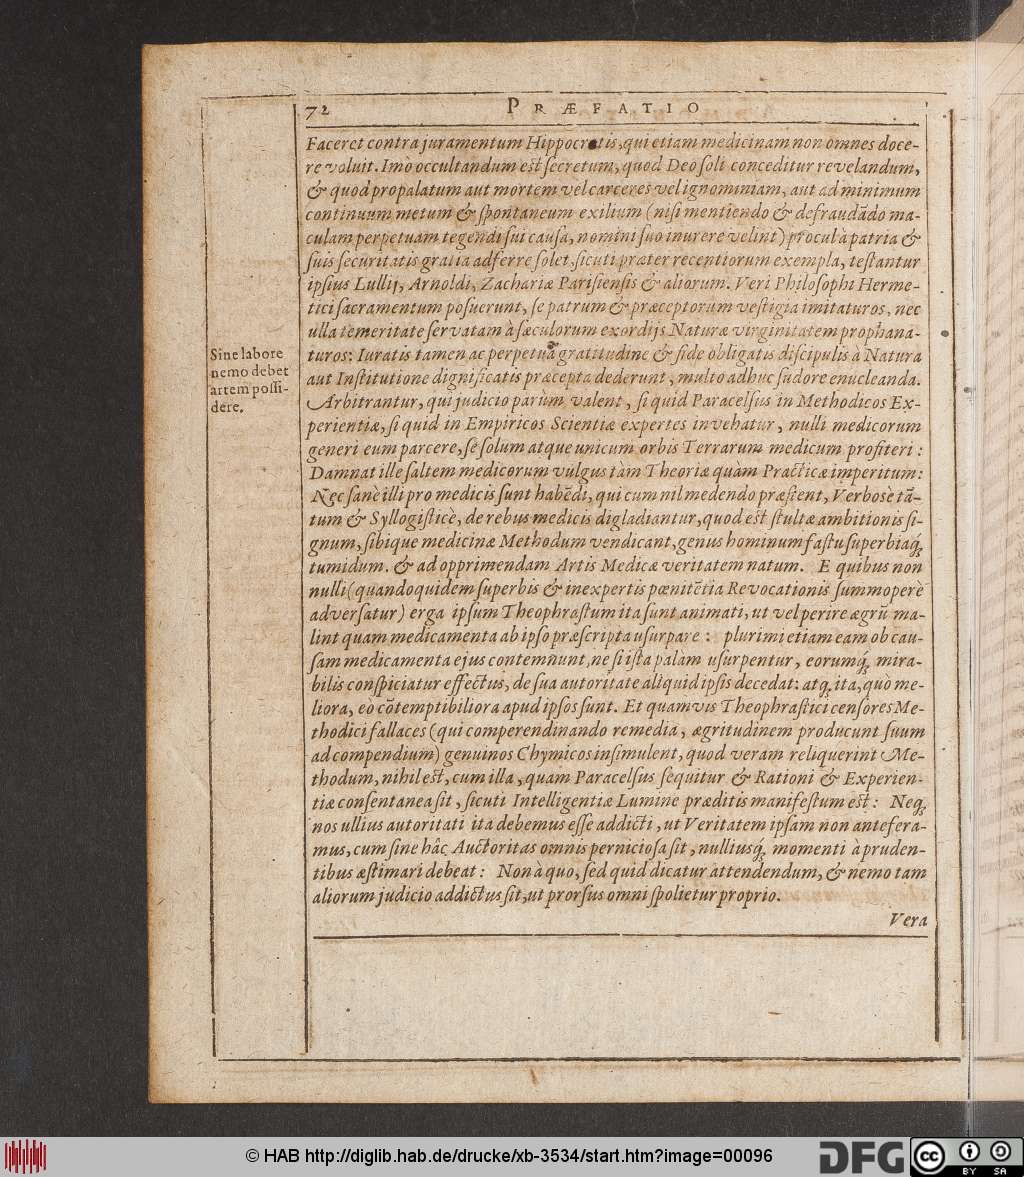 72 PRÆFATIO
Faceret contra juramentum Hippocratis, qui etiam medicinam non omnes doce-
re voluit. Imò occultandum est secretum, quod Deo soli conceditur revelandum,
& quod propalatum aut mortem vel carceres vel ignominiam, aut ad minimum
continuum metum & spontaneum exilium (nisi mentiendo & defraudādo ma-
culam perpetuam tegendi sui causa, nomini suo inurere velint) procul à patria &
suis securitatis gratia adferre solet, sicuti præter recentiorum exempla, testantur
ipsius Lullij, Arnoldi, Zachariæ Parisiensis & aliorum. Veri Philosophi Herme-
tici sacramentum posuerunt, se patrum & præceptorum vestigia imitaturos, nec
ulla temeritate servatam à sæculorum exordijs Naturæ virginitatem prophana-
turos: Iuratis tamen ac perpetuâ gratitudine & fide obligatis discipulis à Natura
aut Institutione dignificatis præcepta dederunt, multo adhuc sudore enucleanda.
Sine labore
nemo debet
artem possi-
dere.
Arbitrantur, qui judicio parùm valent, si quid Paracelsus in Methodicos Ex-
perientiæ, si quid in Empiricos Scientiæ expertes invehatur, nulli medicorum
generi eum parcere, se solum atque unicum orbis Terrarum medicum profiteri:
Damnat ille saltem medicorum vulgus tàm Theoriæ quàm Practicæ imperitum:
Nec sanè illi pro medicis sunt habēdi, qui cum nil medendo præstent, Verbosè tā-
tum & Syllogisticè, de rebus medicis digladiantur, quod est stultæ ambitionis si-
gnum, sibique medicinæ Methodum vendicant, genus hominum fastu superbiaq́;
tumidum. & ad opprimendam Artis Medicæ veritatem natum. E quibus non
nulli (quandoquidem superbis & inexpertis pœnitētia Revocationis summoperè
adversatur) erga ipsum Theophrastum ita sunt animati, ut vel perire ægrū ma-
lint quam medicamenta ab ipso præscripta usurpare: plurimi etiam eam ob cau-
sam medicamenta ejus contemnunt, ne si ista palàm usurpentur, eorumq́; mira-
bilis conspiciatur effectus, de sua autoritate aliquid ipsis decedat: atq; ita, quò me-
liora, eo cōtemptibiliora apud ipsos sunt. Et quamvis Theophrastici censores Me-
thodici fallaces (qui comperendinando remedia, ægritudinem producunt suum
ad compendium) genuinos Chymicos insimulent, quod veram reliquerint Me-
thodum, nihil est, cum illa, quam Paracelsus sequitur & Rationi & Experien-
tiæ consentanea sit, sicuti Intelligentiæ Lumine præditis manifestum est: Neq;
nos ullius autoritati ita debemus esse addicti, ut Veritatem ipsam non antefera-
mus, cum sine hâc Auctoritas omnis perniciosa sit, nulliusq́; momenti à pruden-
tibus æstimari debeat: Non à quo, sed quid dicatur attendendum, & nemo tam
aliorum judicio addictus sit, ut prorsus omni spolietur proprio.
Vera
© HAB http://diglib.hab.de/drucke/xb-3534/start.htm?image=00096
DFG
cc BY SA